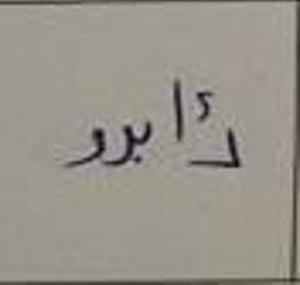 دٔابرو